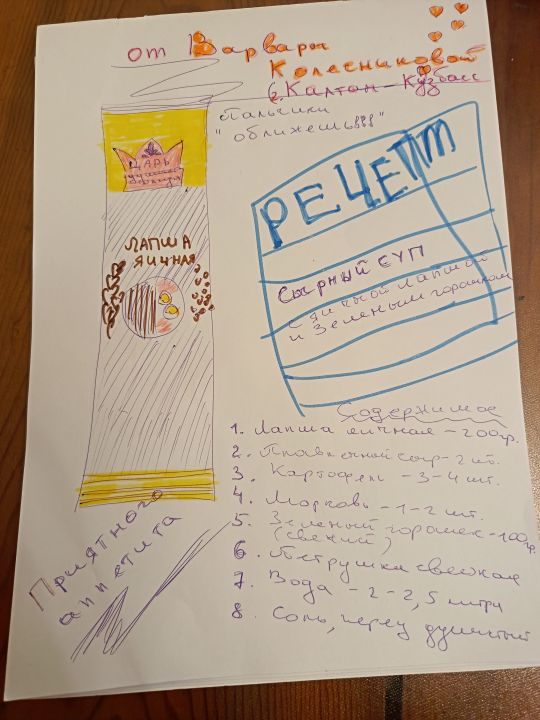 от Варвары
Колесниковой
г. Калтан - Кузбасс
Пальчики
"оближешь"
ЦАРЬ
ЛАПША
ЯИЧНАЯ
РЕЦЕПТ
Сырный СУП
с яичной лапшой
и Зеленым горошком
Содержимое
1. Лапша яичная - 200гр.
2. Плавленный сыр - 2 шт.
3. Картофель - 3-4 шт.
4. Морковь - 1-2 шт.
5. Зеленый горошек - 100гр.
(свежий)
6. Петрушка свежая
7. Вода - 2-2,5 литра
8. Соль, перец душистый
Приятного
аппетита